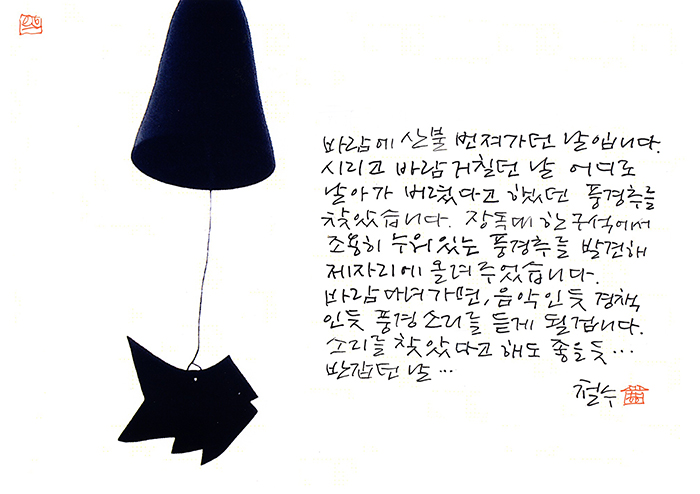 바람에 산불 번져가던 날입니다.
시리고 바람 거칠던 날 어디로
날아가 버렸다고 했던 풍경추를
찾았습니다. 장독대 한 구석에서
조용히 누워있는 풍경추를 발견해
제자리에 올려주었습니다.
바람 다녀가면, 음악인듯 경책
인듯 풍경소리를 듣게 될겁니다.
소리를 찾았다고 해도 좋을듯...
반갑던 날...
철수